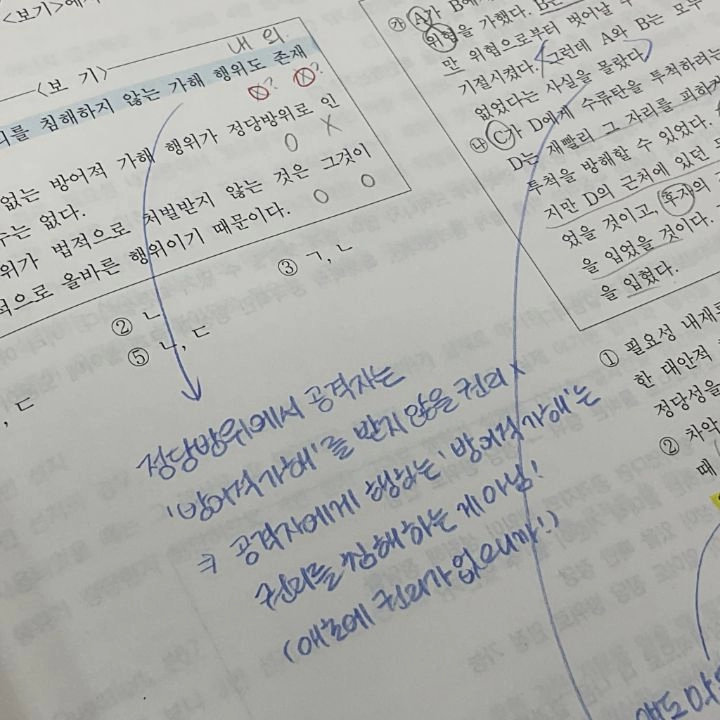 <보기>에
<보 기>
내 의
리를 침해하지 않는 가해 행위도 존재
없는 방어적 가해 행위가 정당방위로 인
수는 없다.
위가 법적으로 처벌받지 않는 것은 그것이
적으로 올바른 행위이기 때문이다.
② ㄴ
③ ㄱ, ㄴ
, ㄷ
⑤ ㄴ, ㄷ
정당방위에서 공격자는
'방어적 가해'를 받지 않을 권리 x
⇒ 공격자에게 행하는 '방어적 가해'는
권리를 침해하는 게 아님!
(애초에 권리가 없으니까!)
㉮ A가 B에
위협을 가했다. B는
만 위협으로부터 벗어날 수
기절시켰다. 그런데 A와 B는 모두
없었다는 사실을 몰랐다.
㉯ C가 D에게 수류탄을 투척하려는
D는 재빨리 그 자리를 피하거
투척을 방해할 수 있었다.
지만 D의 근처에 있던
었을 것이고, 후자의
을 입었을 것이다.
을 입혔다.
① 필요성 내재
한 대안적
정당성을
② 차악
때